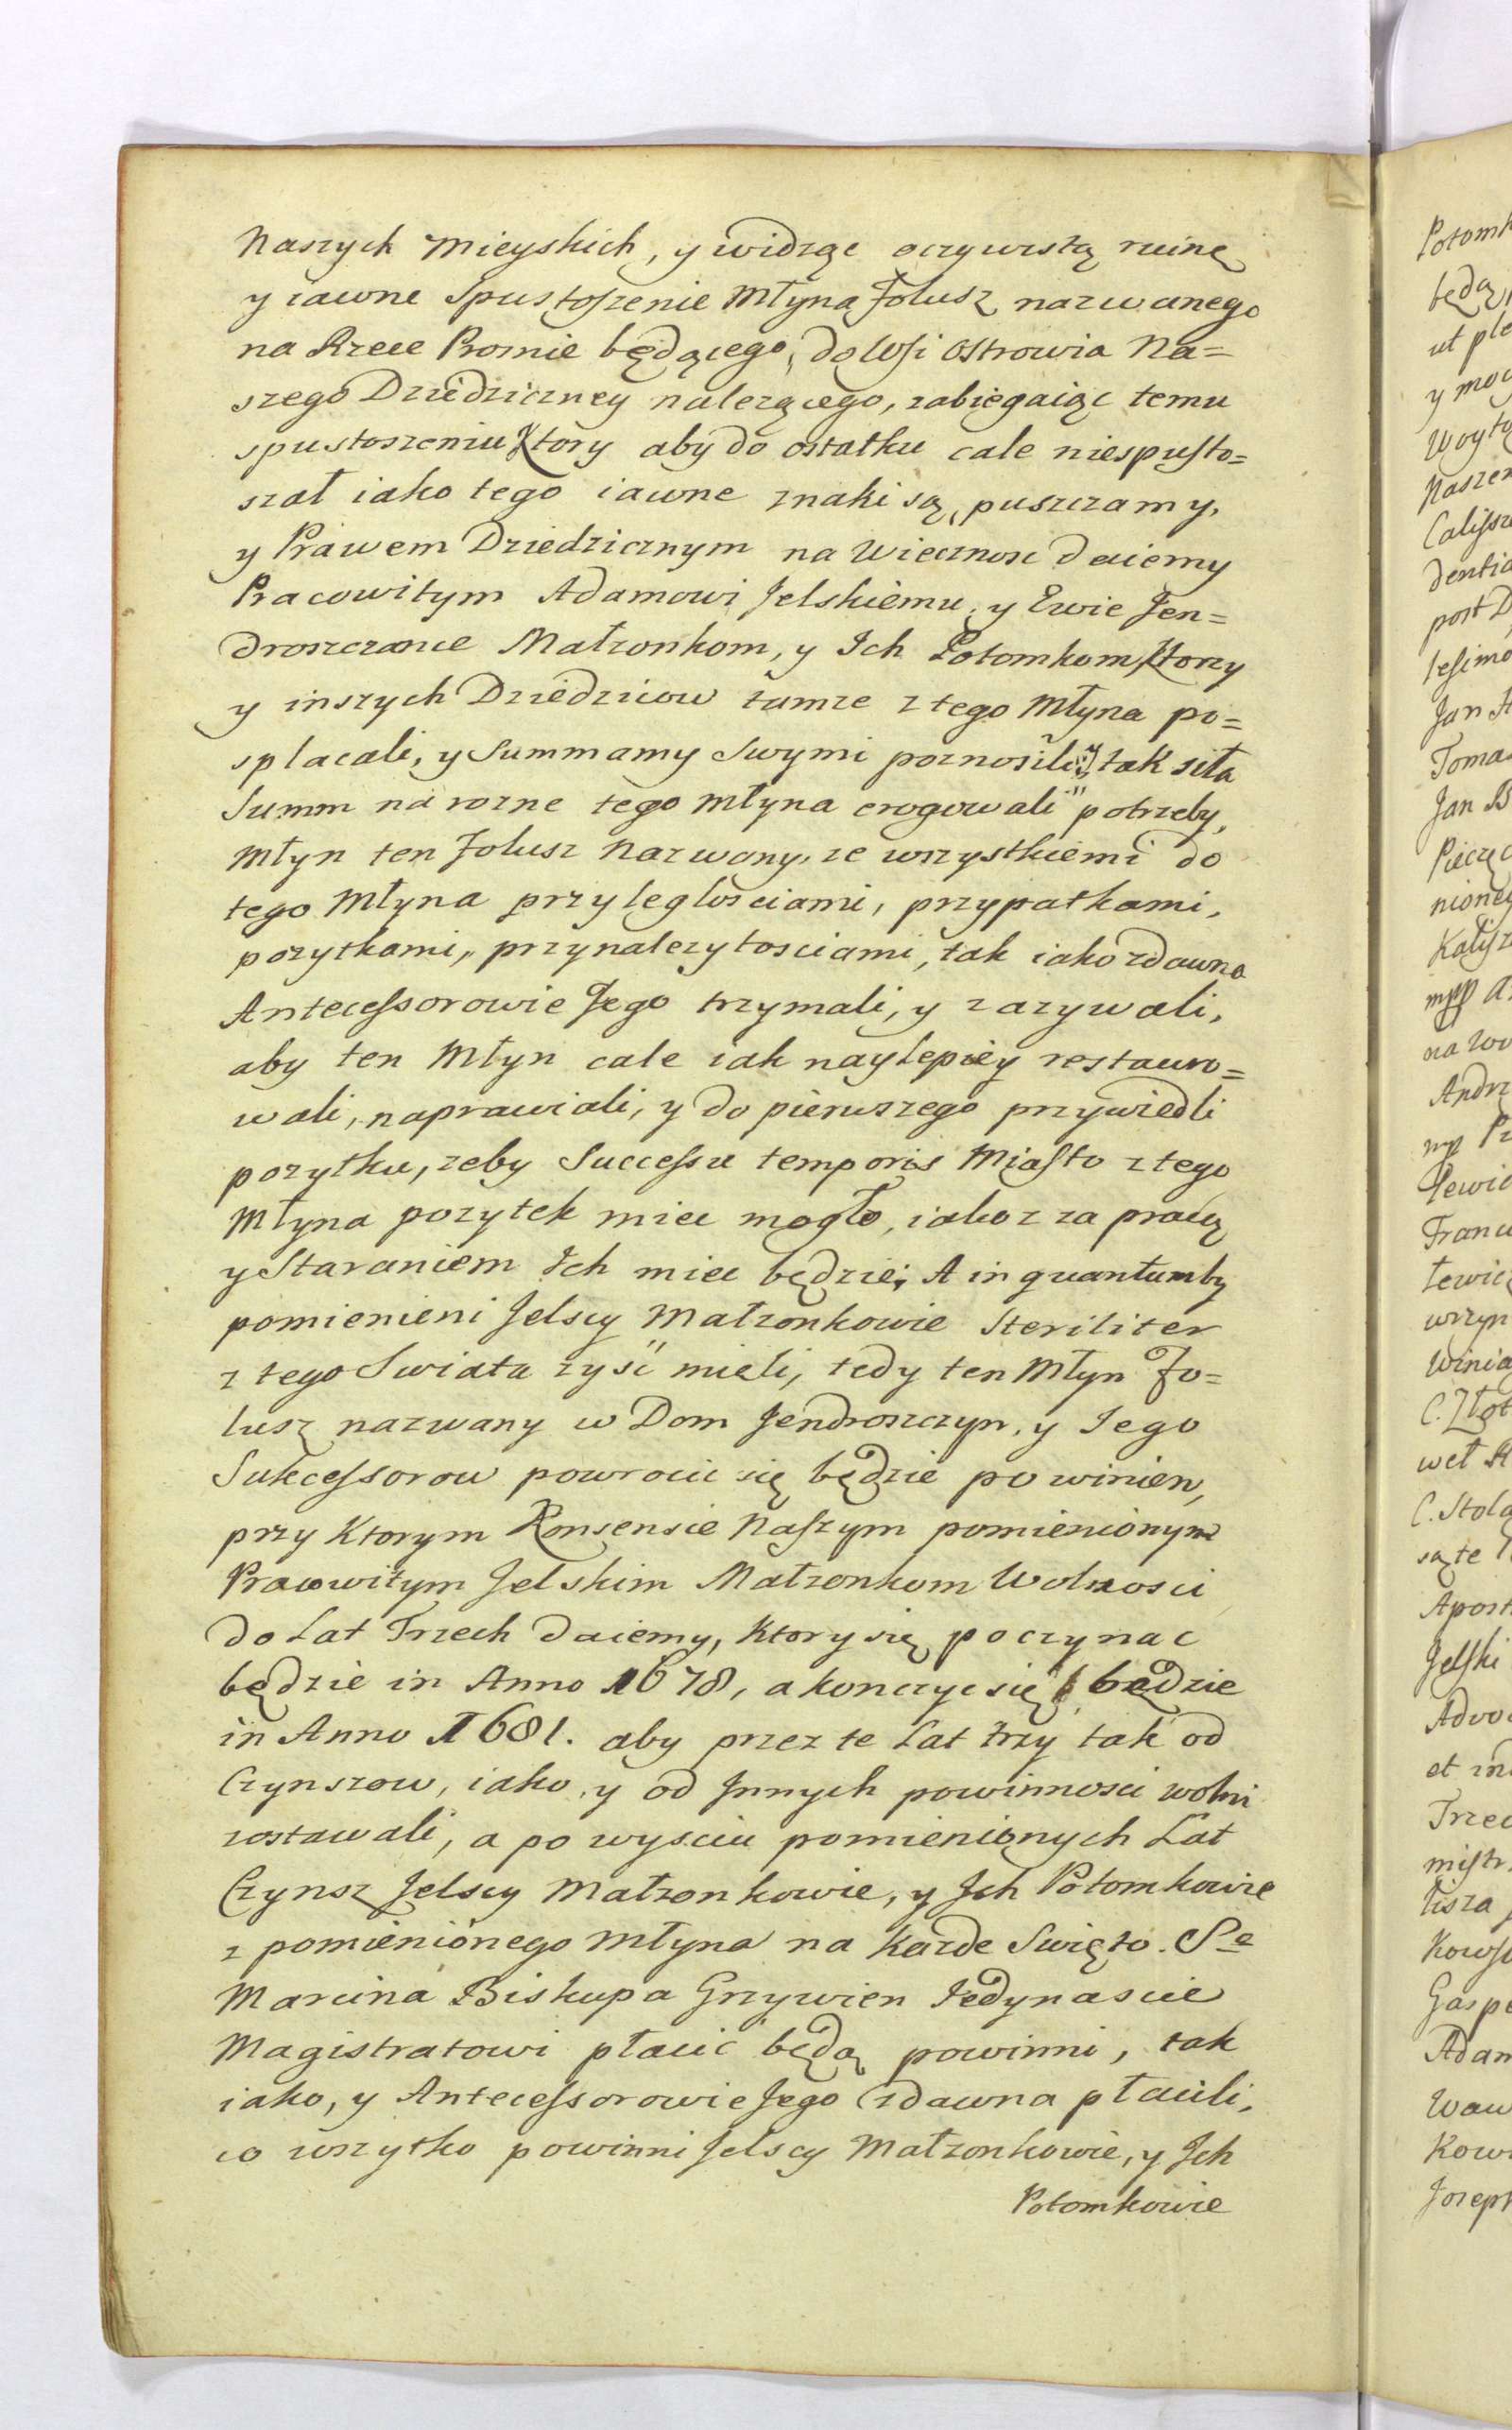 Naszych Mieyskich, y widząc oczywistą ruinę
y iawne Spustoszenie Młyna Folusz nazwanego
na Rzece Prosnie będącego, do Wsi Ostrowia Na=
szego Dziedziczney nalezącego, zabiegaiąc temu
spustoszeniu Ktory aby do ostatku cale niespusto=
szał iako tego iawne znaki są, puszczamy,
y Prawem Dziedzicznym na Wiecznosc daiemy
Pracowitym Adamowi Jelskiemu, y Ewie Jen=
droszczance Małzonkom, y Ich Potomkom, Ktorzy
y inszych Dziedzicow tamze z tego Młyna po=
splacali, y Summamy Swymi poznosili, y tak siła
Summ na rozne tego Młyna erogowali potrzeby,
Młyn ten Folusz Nazwany, ze wszystkiemi do
tego Młyna przyległosciami, przypatkami,
pozytkami, przynalezytosciami, tak iako zdawna
Antecessorowie Jego trzymali, y zazywali,
aby ten Młyn cale iak naylepiey restauro=
wali, naprawiali, y do pierwszego przywiedli
pozytku, zeby Successu temporis Miasto z tego
Młyna pozytek miec mogło, iakoz za pracą
y Staraniem Ich miec będzie; A in quantumby
pomienieni Jelscy Małzonkowie Steriliter
z tego Swiata zyść mieli, tedy ten Młyn Fo=
lusz nazwany w Dom Jendroszczyn, y Iego
Sukcessorow powrocic się będzie powinien,
przy Ktorym Konsensie Naszym pomienionym
Pracowitym Jelskim Małzonkom Wolnosci
do Lat Trzech daiemy, Ktory się poczynac
będzie in Anno 1678, a konczyc się będzie
in Anno 1681. aby przez te Lat trzy tak od
Czynszow, iako y od Innych powinnosci wolni
zostawali, a po wysciu pomienionych Lat
Czynsz Jelscy Małzonkowie, y Ich Potomkowie
z pomienionego Młyna na Kazde Swięto Sº
Marcina Biskupa Grzywien Iedynascie
Magistratowi płacić będą powinni, tak
iako, y Antecessorowie Jego zdawna płacili,
co wszytko powinni Jelscy Małzonkowie, y Ich
Potomkowie